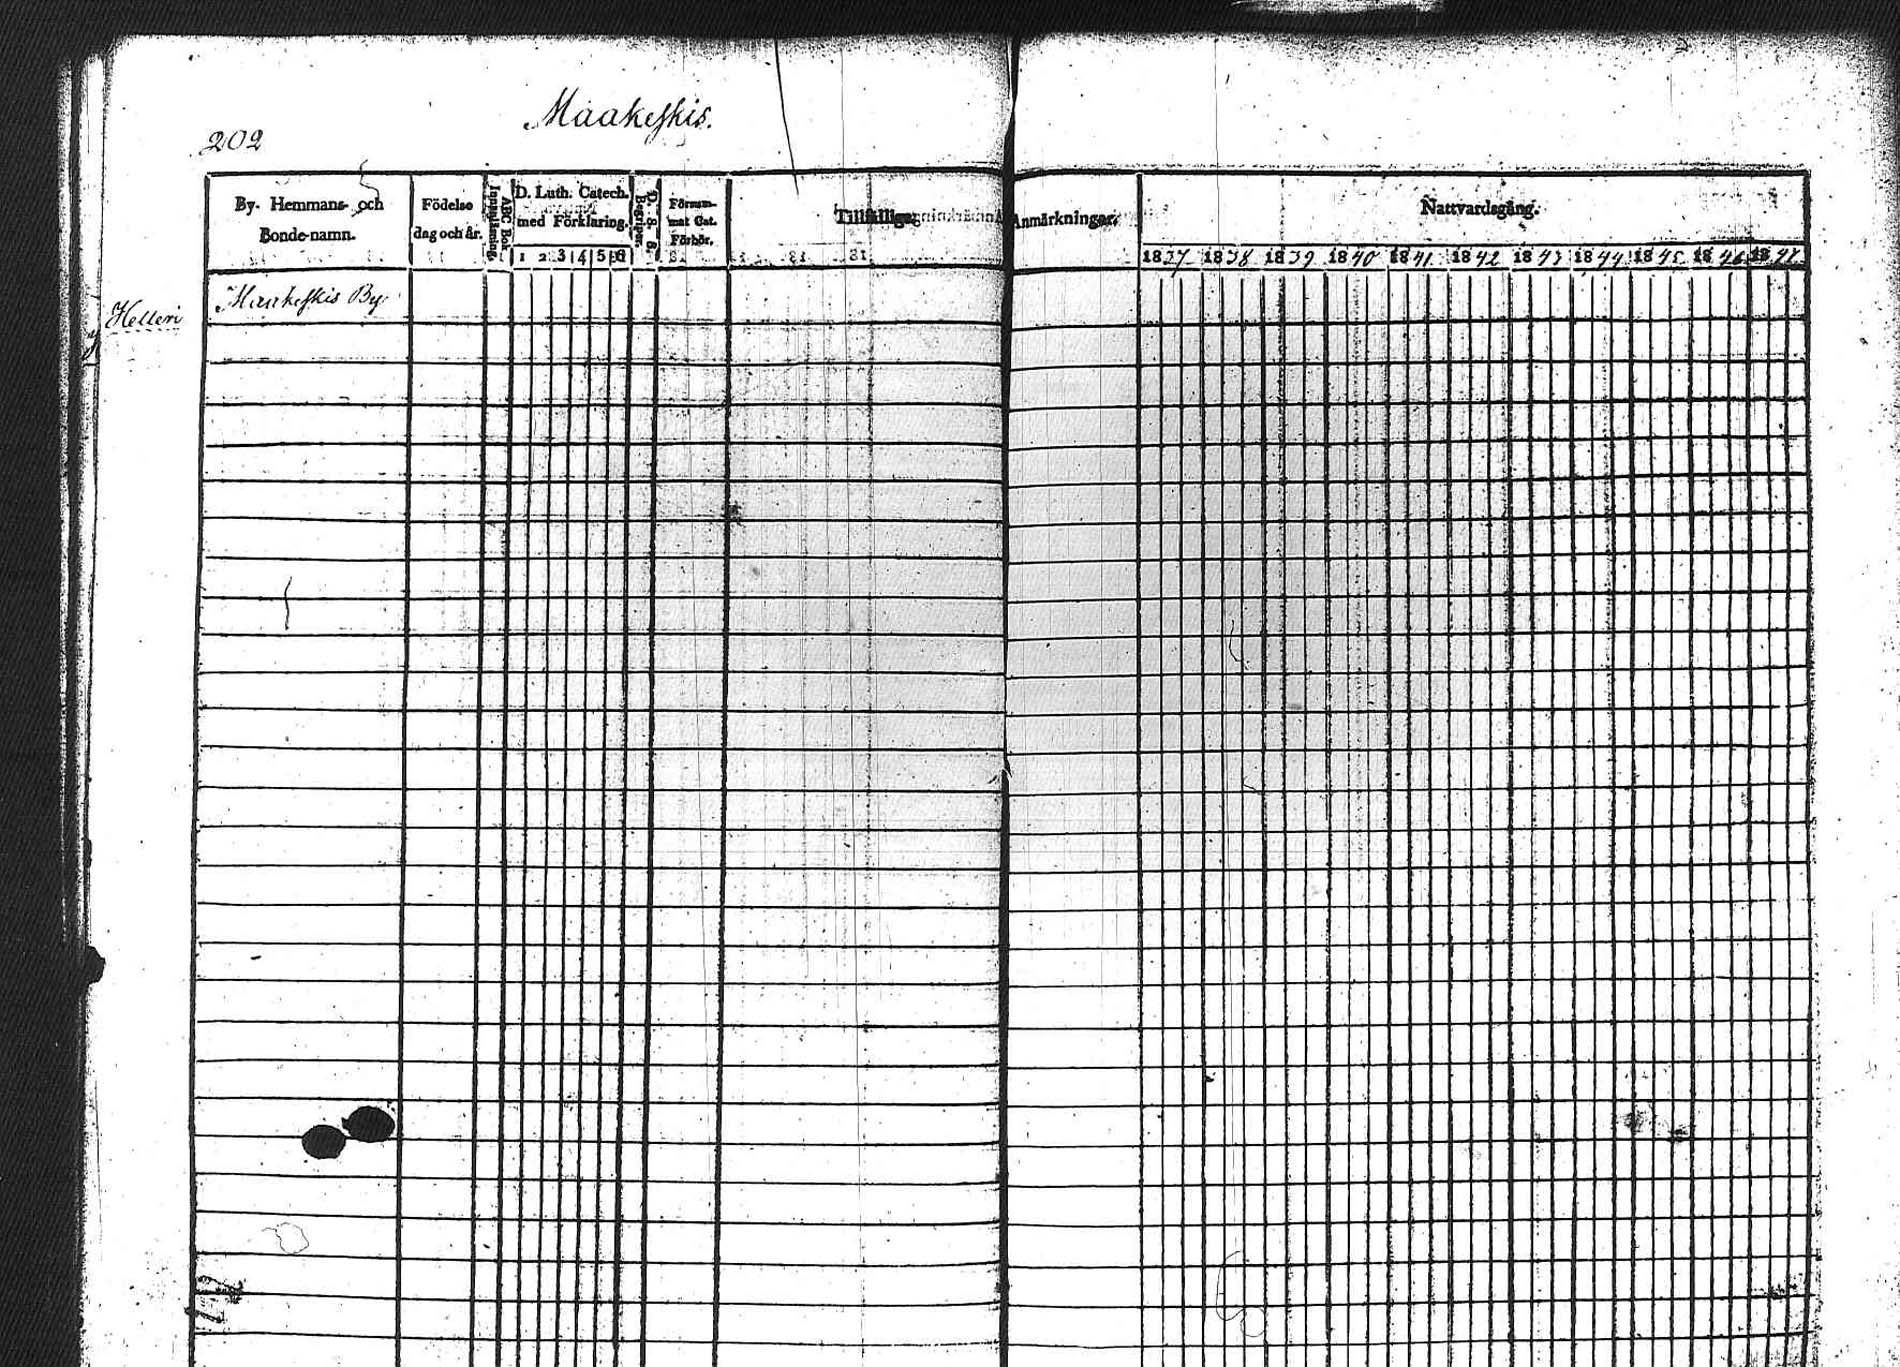 Maakeskis.
202
By- Hemmans- och
Bonde-namn.
Födelse
dag och år.
ABC Bok
Innanläsning.
D. Luth. Catech.
med Förklaring.
1 2 3 4 5 6
D. S. B.
Begriper.
Försum-
mat Cat.
Förhör.
Tillfällige Anmärkningar.
Nattvardsgång.
1837 1838 1839 1840 1841 1842 1843 1844 1845 1846 1847
Helleri
Maakeskis By